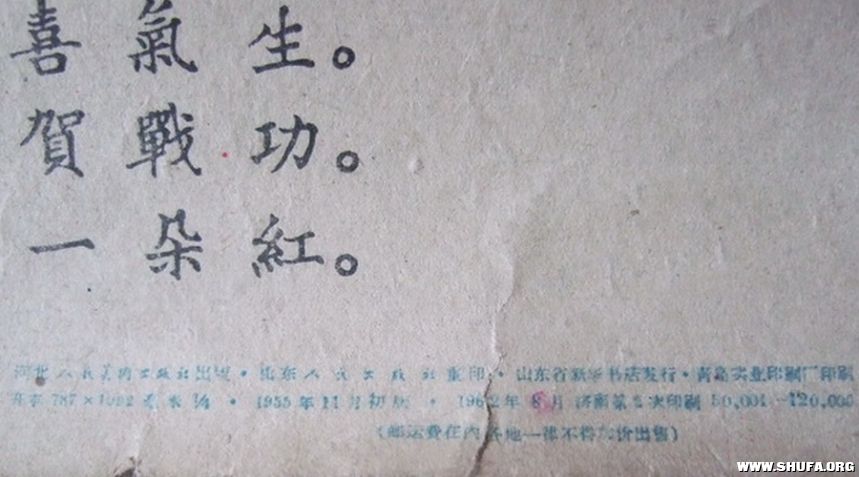 喜氣生。
賀戰功。
一朵紅。
河北人民美術出版社出版・山东人民出版社重印・山东省新华书店发行・青島实业印刷厂印刷
787×1092 ・1955年11月初版・1962年8月济南第2次印刷 50,001—120,000
(邮运費在内各地一律不得加价出售)
WWW.SHUFA.ORG